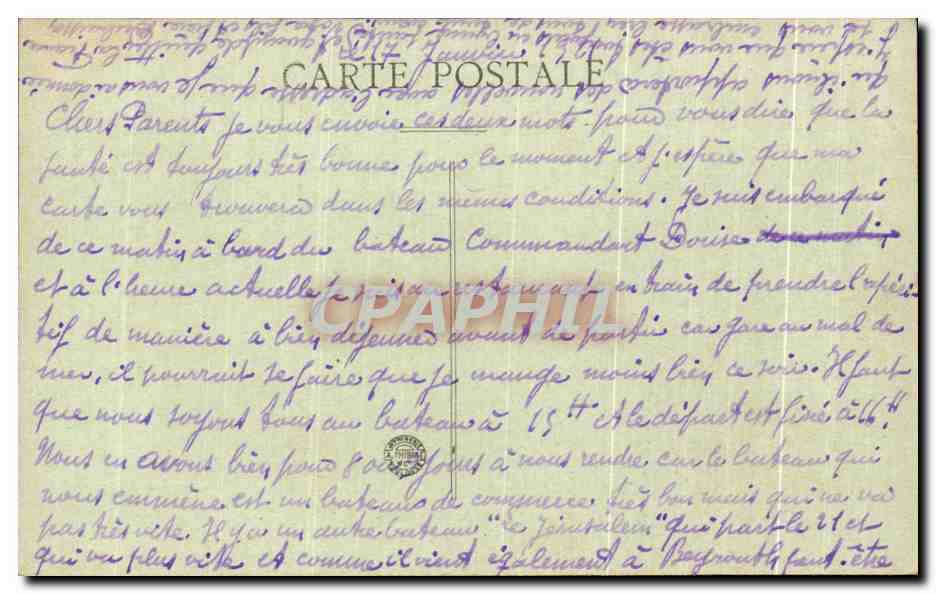 CARTE POSTALE
Chers Parents je vous envoie ces deux mots pour vous dire que la
santé est toujours très bonne pour le moment et j'espère que ma
carte vous trouvera dans les mêmes conditions. Je suis embarqué
de ce matin à bord du bateau Commandant Dorise de ce matin
et à l'heure actuelle je suis au restaurant en train de prendre l'apéri-
tif de manière à bien déjeuner avant de partir car gare au mal de
mer, il pourrait se faire que je mange moins bien ce soir. Il faut
que nous soyons tous au bateau à 15H et le départ est fixé à 16H.
Nous en avons bien pour 8 ou jours à nous rendre car le bateau qui
nous emmène est un bateau de commerce très bon mais qui ne va
pas très vite. Il y a un autre bateau "Le Jérusalem" qui part le 21 et
qui va plus vite et comme il vient également à Beyrouth peut-être
qu'il vous apportera des nouvelles avec l'adresse que je vous ai donné
J'espère que vous êtes
CPAPHIL